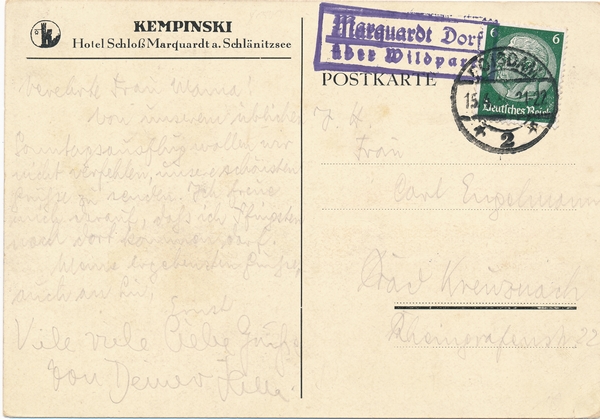 KEMPINSKI
Hotel Schloß Marquardt a. Schlänitzsee
Marquardt Dorf
über Wildpar
6 6
POTSDAM
15.
21-22
* 2 *
Deutsches Reich
POSTKARTE
Verehrte Frau Mama!
Von unserem üblichen
Sonntagsausflug wollen wir
nicht verfehlen, unsere schönsten
Grüße zu senden. Ich freue
mich darauf, daß ich Pfingsten
nach dort kommen darf.
ergebensten Grüße
auch an
Ernst
Viele viele liebe Grüße
von Deiner
Frau
Carl Engelmann
Bad Kreuznach
Rheingrafenstr. 22